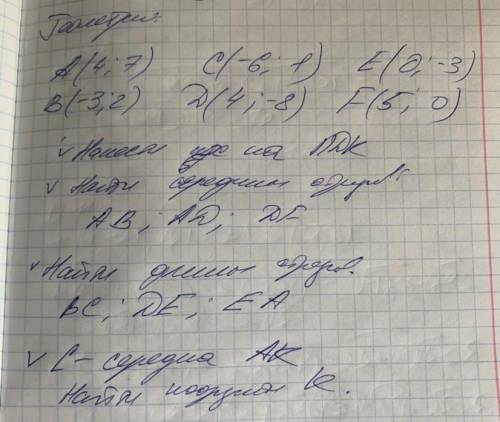 Геометрия.
A(4; 7) C(-6; 1) E(0; -3)
B(-3; 2) D(4; -8) F(5; 0)
v Нанести на ПДК
v Найти середины отрезков
AB; AD; DE
v Найти длины отрезков.
BC; DE; EA
v C - середина AK
Найти координаты K.